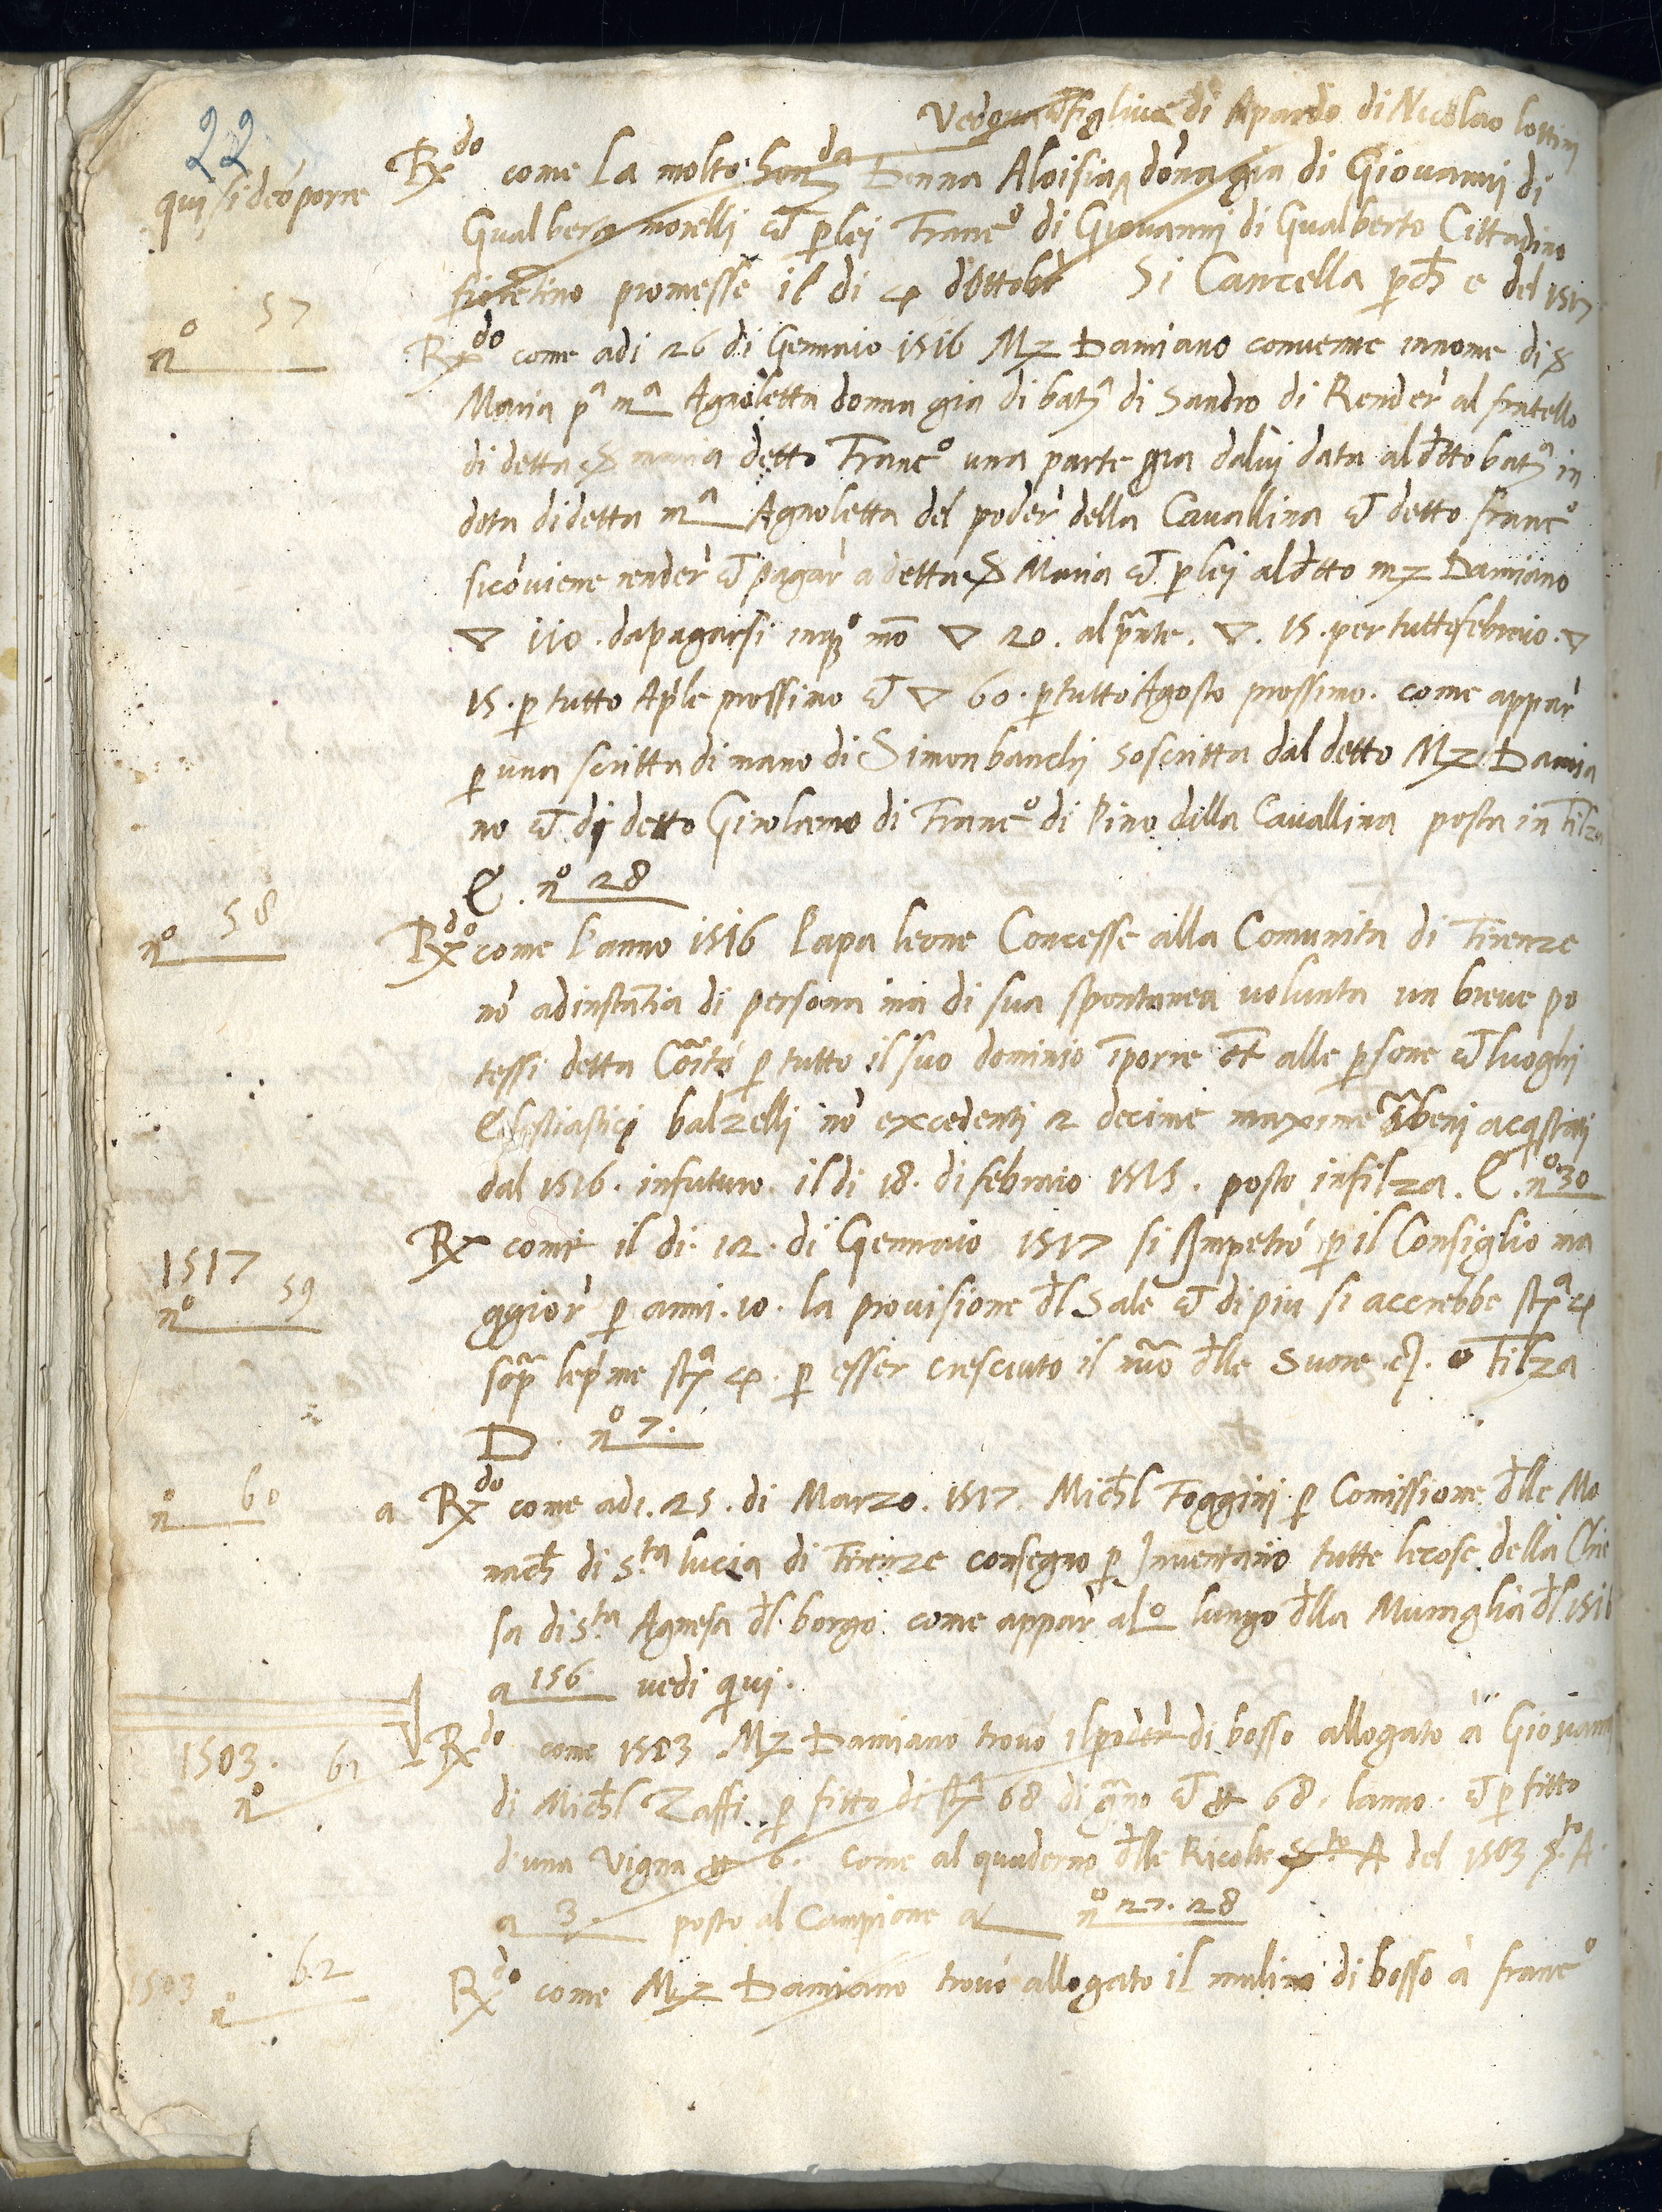 22
Vedqua figliua di Apardo di Nicolao lottini
qui si deo porre
Rxdo come La molto honda Donna Aloisia dona gia di Giovanni di
Gualberto morelli et p lei Franco di Giovanni di Gualberto Cittadino
fiorētino promesse il di 4 dottobr Si Cancella pch e del 1517
no 57
Rxdo come adi 26 di Gennaio 1516 Mz Damiano convenne in nome di S
Maria pa ma Agnoletta donna gia di bata di Sandro di Render al fratello
di detta S maria detto Franco una parte gia dalui data al dtto bata in
dota di detta ma Agnoletta del poder della Cavallina et detto franco
si cōviene render et pagar a detta S Maria et p lei al dtto mz Damiano
▽ 110 . da pagarsi in qo mō ▽ 20 . al pnte . ▽ . 15 . per tutto febraio . ▽
15 . p tutto Aple prossimo et ▽ 60 . p tutto Agosto prossimo . come appar
p una scritta di mano di Simon banchi soscritta dal detto Mz Damia
no et di detto Girolamo di Franco di Pino della Cavallina posta in Filza
C . no 28
no 58
Rxdo come l'anno 1516 Papa leone Concesse alla Comunita di Firenze
nō ad instātia di persona ma di sua spontanea volunta un breve po
tessi detta Cōita p tutto il suo dominio īporre et alle psone et luoghi
balzelli nō excedenti 2 decime maxime beni acqstati
dal 1516 . in futuro . il di 18 . di febraio 1515 . posto in filza . C . no 30
1517
no 59
Rx come il di . 12 . di Gennaio 1517 si Impetrò p il Consiglio ma
ggior p anni . 10 . la provisione dl Sale et di piu si accrebbe sta 4
sopa le pme sta 4 . p esser cresciuto il nuō dlle Suore . Filza
D . no 7 .
no 60
a Rxdo come adi . 25 . di Marzo . 1517 . Michl Foggini p Comissione dlle Mo
nach di S.ta lucia di Firenze consegno p Inventario tutte le cose della Chie
sa di S.ta Agnesa dl borgo come appar al o lungo dlla Muraglia dl 1516
a 156 vedi qui .
1503 .
no 61
Rxdo come 1503 . Mz Damiano trovò il poder di bosso allogato à Giovanni
di Michl Zaffi p fitto di sta 68 di gno et 68 . lanno . et p fitto
d'una Vigna 6 . come al quaderno dlle Ricolte A del 1503 S.to A .
a 3 . posto al Campione a no 27 . 28
1503
no 62
Rxdo come Mz Damiano trovò allogato il mulino di bosso à franco